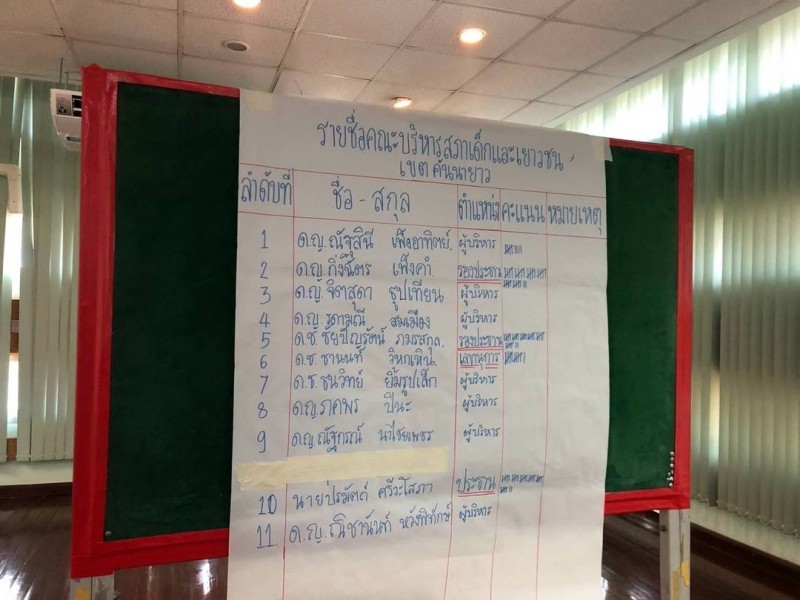 รายชื่อคณะบริหารสภาเด็กและเยาวชน
เขตคันนายาว
ลำดับที่ ชื่อ - สกุล ตำแหน่ง คะแนน หมายเหตุ
1 ด.ญ.ณัฐสินี เพ็งอาทิตย์ ผู้บริหาร
2 ด.ญ.กิ่งฉัตร เพ็งคำ รองประธาน
3 ด.ญ.จิตสุดา ธูปเทียน ผู้บริหาร
4 ด.ญ. สมเมือง ผู้บริหาร
5 ด.ช.ชัยปัญรัตน์ ภมรสกุล. รองประธาน
6 ด.ช.ชานนท์ วิหกเหิน เลขานุการ
7 ด.ช.ชนวิทย์ ยิ้มรูปเล็ก ผู้บริหาร
8 ด.ญ.ภคพร ปินะ ผู้บริหาร
9 ด.ญ.ณัฐภรณ์ นาไชยเพชร ผู้บริหาร
10 นายปรมัตถ์ ศรีวะโสภา ประธาน
11 ด.ญ.ณิชานันท์ หวังพิทักษ์ ผู้บริหาร